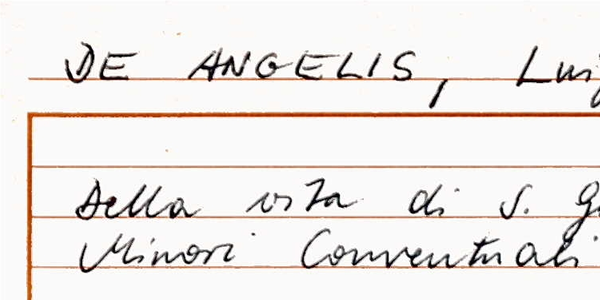 DE ANGELIS, Lui
Della vita di S. G
Minori Conventuali